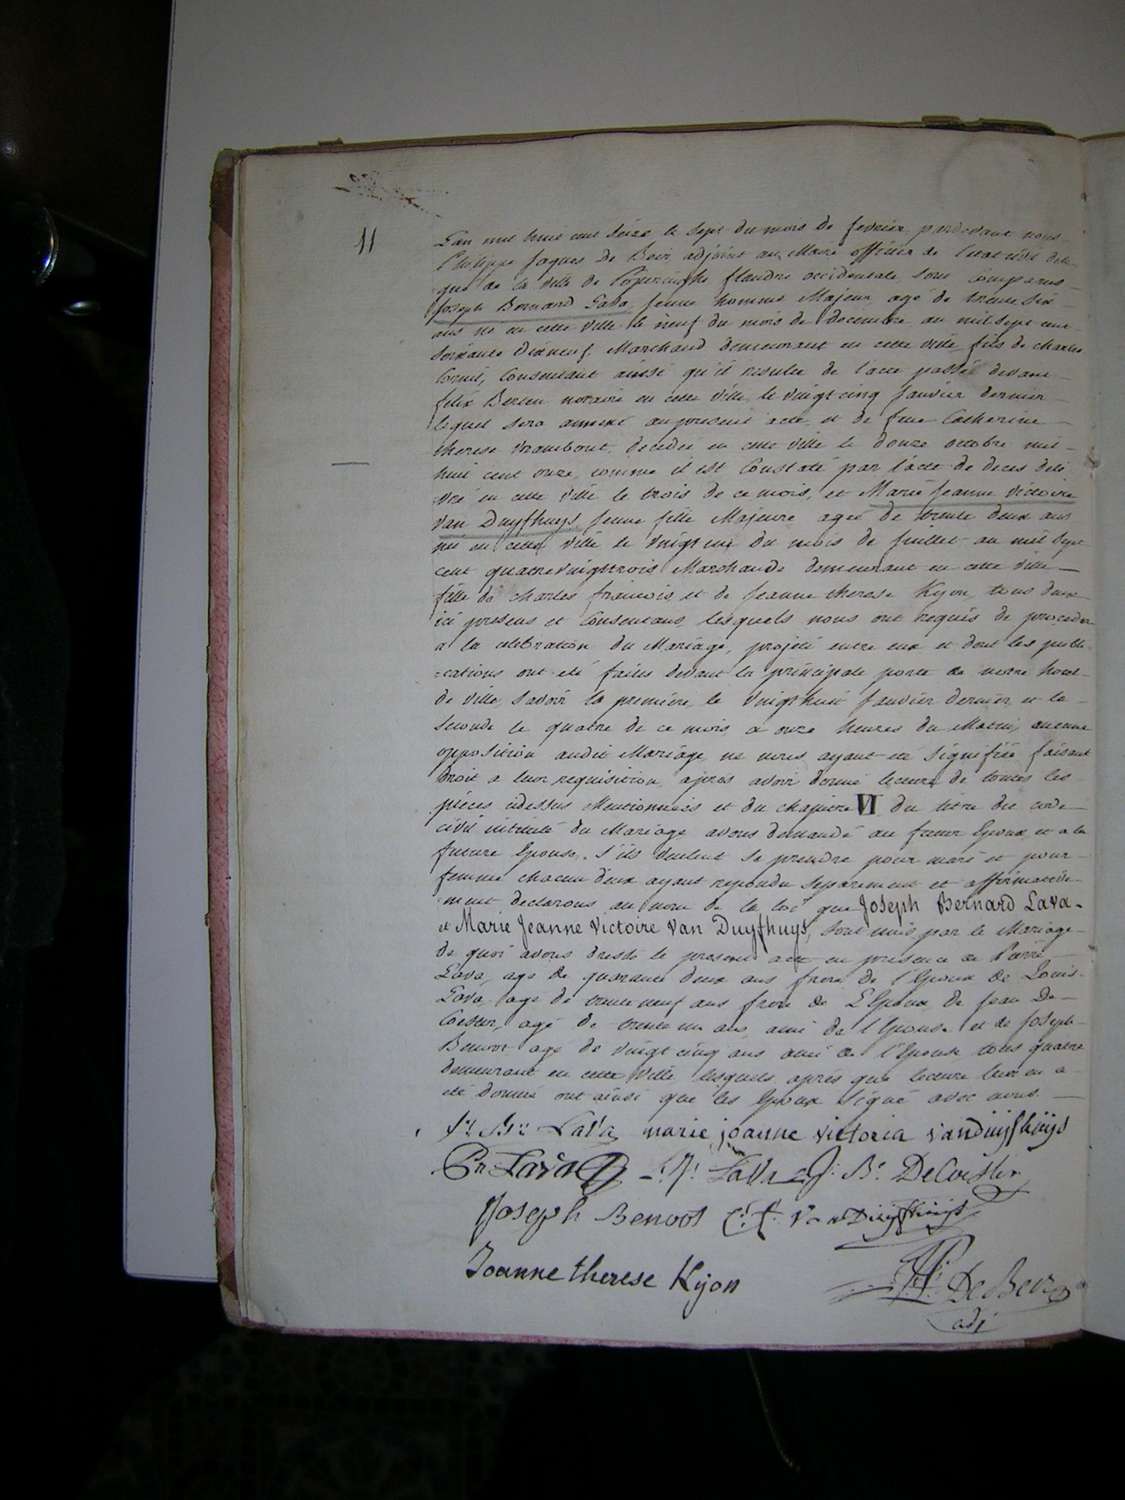 11
L'an mil huit cent seize le sept du mois de fevrier pardevant nous
Philippe Jaques de Beir adjoint au Maire officier de l'etat civil dele
gué de la ville de Poperinghe flandre occidentale sont comparus
Joseph Bernard Lava, jeune homme Majeur, agé de trente six
ans né en cette ville le neuf du mois de decembre an mil sept cent
soixante dixneuf, Marchand demeurant en cette ville, fils de charles
Corneil, Consentant ainsi qu'il resulte de l'acte passé devant
felix Berten notaire en cette ville le vingt cinq Janvier dernier
lequel sera annexé au present acte, et de feue Catherine
therese Vrambout, decedée en cette ville le douze octobre mil
huit cent onze, comme il est Constaté par l'acte de deces deli
vré en cette ville le trois de ce mois, et Marie Jeanne Victoire
Van Duyfhuys, jeune fille Majeure, agée de trente deux ans
née en cette ville le vingt un du mois de Juillet an mil sept
cent quatre vingt trois Marchande demeurant en cette ville
fille de Charles francois, et de Jeanne therese Kyon, tous deux
ici presens et Consentans, lesquels nous ont requis de proceder
a la celebration du Mariage, projeté entre eux et dont les publi
cations ont eté faites devant la principale porte de notre hotel
de ville, savoir la premiere le vingt huit Janvier dernier et la
seconde le quatre de ce mois a onze heures du Matin, aucune
opposition audit Mariage ne nous ayant eté signifiée faisant
droit a leur requisition, apres avoir donné lecture de toutes les
pièces cidessus Mentionnées et du chapitre VI du titre du code
civil intitulé du Mariage avons demandé au futur Epoux et a la
future Epouse, s'ils veulent se prendre pour mari et pour
femme chacun d'eux ayant repondu separement et affirmative
ment declarons au nom de la loi que Joseph Bernard Lava
et Marie Jeanne Victoire Van Duyfhuys, sont unis par le Mariage
de quoi avons dressé le present acte en presence de Pierre
Lava, agé de quarante deux ans frere de l'Epoux de Louis
Lava, agé de trente neuf ans frere de L'Epoux, de Jean De
Coester, agé de trente un ans ami de l'Epouse et de Joseph
Benoot agé de vingt cinq ans ami de l'Epouse tous quatre
demeurant en cette Ville lesquels après que lecture leur en a
eté donnée ont ainsi que les Epoux signé avec nous.
Js. Br. Lava marie joanne victoria vanduijfhuijs
Pr Lava L. Lava J. Bt. DeCoester
Joseph Benoot C. f. Van Duyfhuijs
Joanne therese Kijon
DeBeir
adj